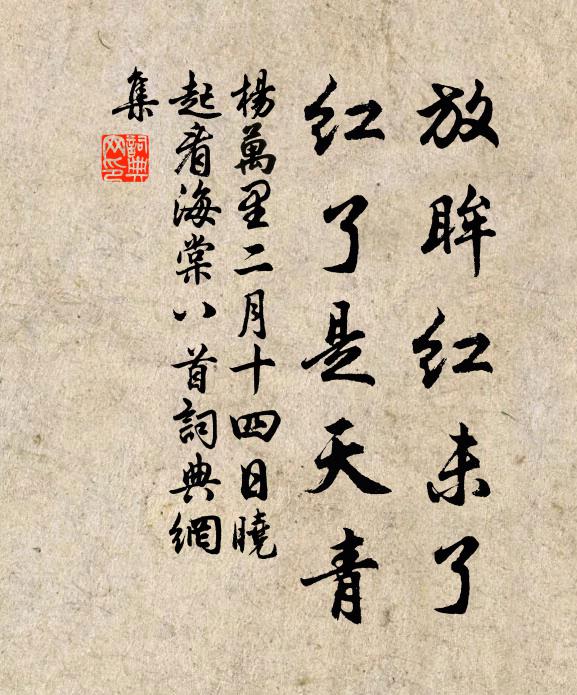 放眸紅未了
紅了是天青
楊萬里二月十四日曉
起看海棠八首詞典網
集
詞典
网印